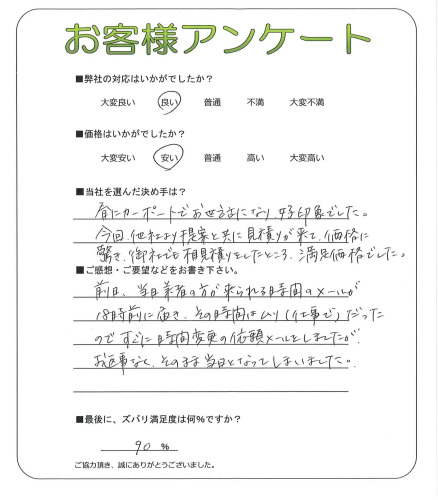 お客様アンケート
■弊社の対応はいかがでしたか？
大変良い 良い 普通 不満 大変不満
■価格はいかがでしたか？
大変安い 安い 普通 高い 大変高い
■当社を選んだ決め手は？
前にカーポートでお世話になり、好印象でした。
今回、他社より提案と共に見積りが来て、価格に
驚き、御社でも相見積りをしたところ、満足価格でした。
■ご感想・ご要望などをお書き下さい。
前日、当日業者の方が来られる時間のメールが
18時前に届き、その時間はムリ（仕事で）だった
のですぐに時間変更の依頼メールをしましたが、
お返事なく、そのまま当日となってしまいました。
■最後に、ズバリ満足度は何%ですか？
90 %
ご協力頂き、誠にありがとうございました。